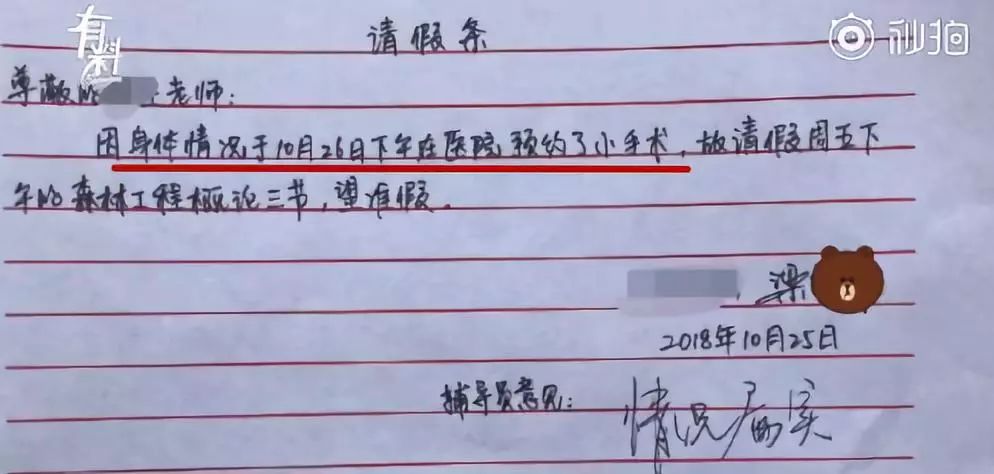 有料
秒拍
请假条
尊敬的 老师:
因身体情况于10月26日下午在医院预约了小手术,故请假周五下
午的森林工程概论三节,望准假.
梁
2018年10月25日
辅导员意见:
情况属实